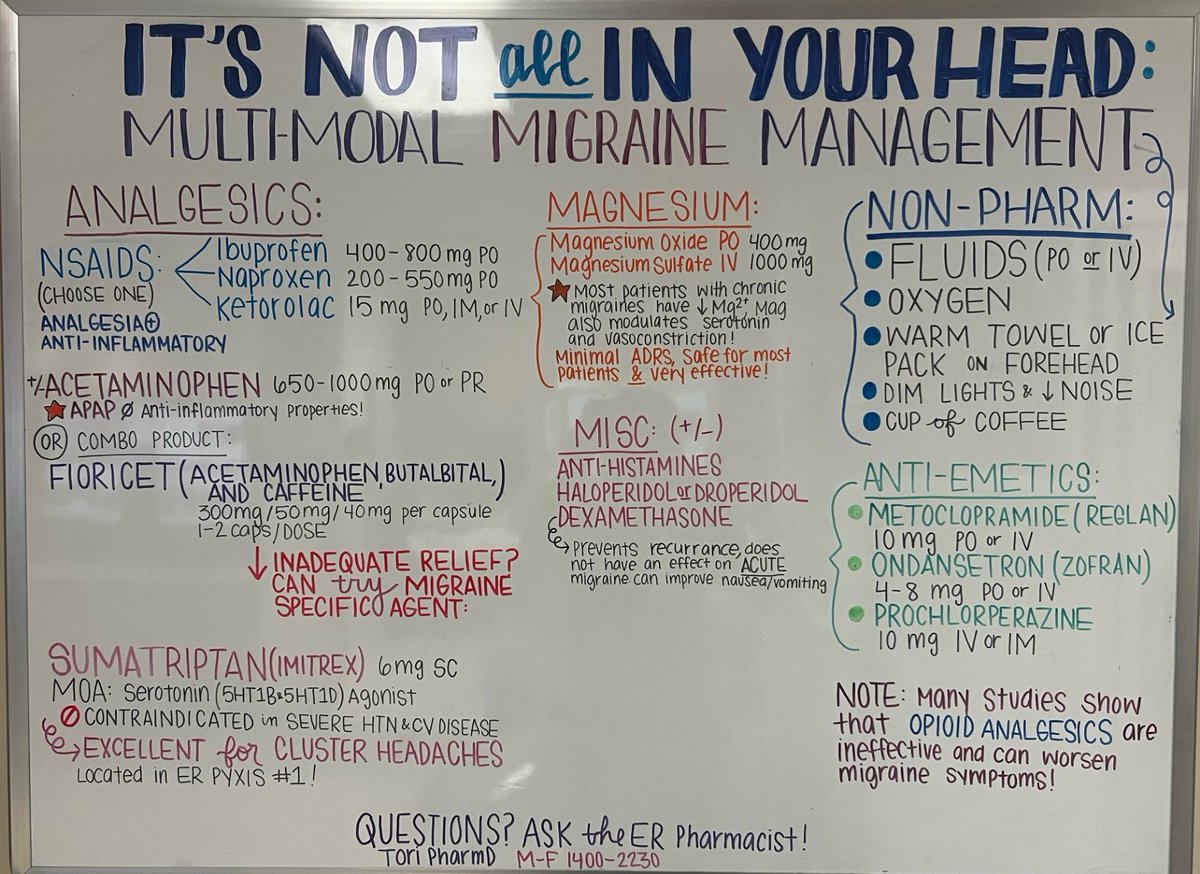 IT'S NOT all IN YOUR HEAD:
MULTI-MODAL MIGRAINE MANAGEMENT
ANALGESICS:
NSAIDS:
(CHOOSE ONE)
ANALGESIA⊕
ANTI-INFLAMMATORY
Ibuprofen 400-800mg PO
Naproxen 200-550mg PO
Ketorolac 15 mg PO, IM, or IV
+/- ACETAMINOPHEN 650-1000mg PO or PR
★ APAP Ø Anti-inflammatory properties!
OR COMBO PRODUCT:
FIORICET (ACETAMINOPHEN, BUTALBITAL,
AND CAFFEINE)
300mg/50mg/40mg per capsule
1-2 caps/DOSE
↓ INADEQUATE RELIEF?
CAN try MIGRAINE
SPECIFIC AGENT:
SUMATRIPTAN (IMITREX) 6mg SC
MOA: Serotonin (5HT1B&5HT1D) Agonist
CONTRAINDICATED in SEVERE HTN & CV DISEASE
EXCELLENT for CLUSTER HEADACHES
Located in ER PYXIS #1!
MAGNESIUM:
Magnesium Oxide PO 400mg
Magnesium Sulfate IV 1000mg
★ Most patients with chronic
migraines have ↓Mg2+, Mag
also modulates serotonin
and vasoconstriction!
Minimal ADRS, safe for most
patients & very effective!
MISC: (+/-)
ANTI-HISTAMINES
HALOPERIDOL or DROPERIDOL
DEXAMETHASONE
Prevents recurrance, does
not have an effect on ACUTE
migraine can improve nausea/vomiting
NON-PHARM:
FLUIDS (PO or IV)
OXYGEN
WARM TOWEL or ICE
PACK ON FOREHEAD
DIM LIGHTS & ↓ NOISE
CUP of COFFEE
ANTI-EMETICS:
METOCLOPRAMIDE (REGLAN)
10mg PO or IV
ONDANSETRON (ZOFRAN)
4-8 mg PO or IV
PROCHLORPERAZINE
10 mg IV or IM
NOTE: Many studies show
that OPIOID ANALGESICS are
ineffective and can worsen
migraine symptoms!
QUESTIONS? ASK the ER Pharmacist!
Tori PharmD M-F 1400-2230